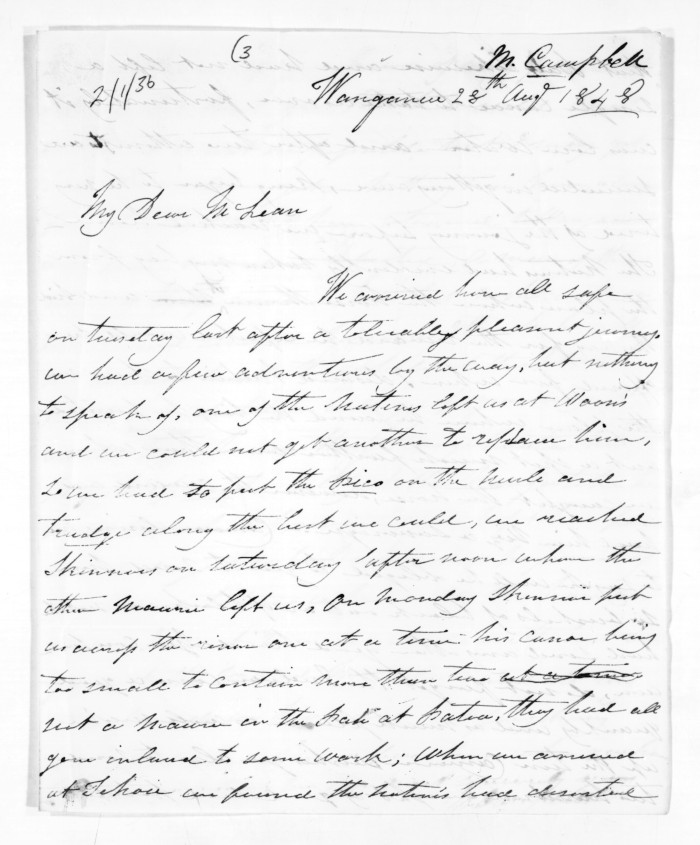 (3
M. Campbell
2/1/36
Wanganui 28th Augt 1848
My Dear McLean
We arrived here all safe
on tuesday last after a tolerably pleasant journey
we had a few adventures by the way, but nothing
to speak of, one of the Natives left us at Woon's
and we could not get another to replace him,
so we had to put the pico on the mule and
trudge along the best we could, we reached
Skinners on Saturday after noon where the
other Maurie left us, On Monday Skinner put
us across the river one at a time his canoe being
too small to contain more than two at a time
not a Maurie in the Pah at Patea, they had all
gone inland to some work; When we arrived
at we found the Natives had deserted